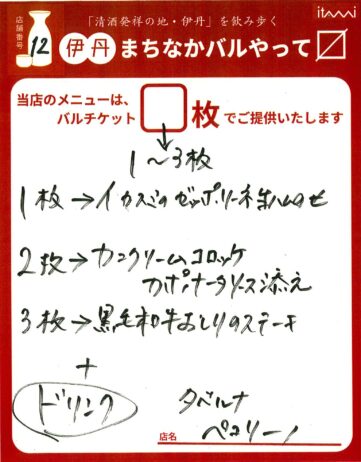 店舗番号
12
「清酒発祥の地・伊丹」を飲み歩く
itami
伊丹 まちなかバルやって〼
当店のメニューは、
バルチケット 枚でご提供いたします
1〜3枚
1枚→イカスミのゼッポリーネ生ハムのせ
2枚→カニクリームコロッケ
カポナータソース添え
3枚→黒毛和牛おしりのステーキ
+
ドリンク
タベルナ
店名 ペコリーノ